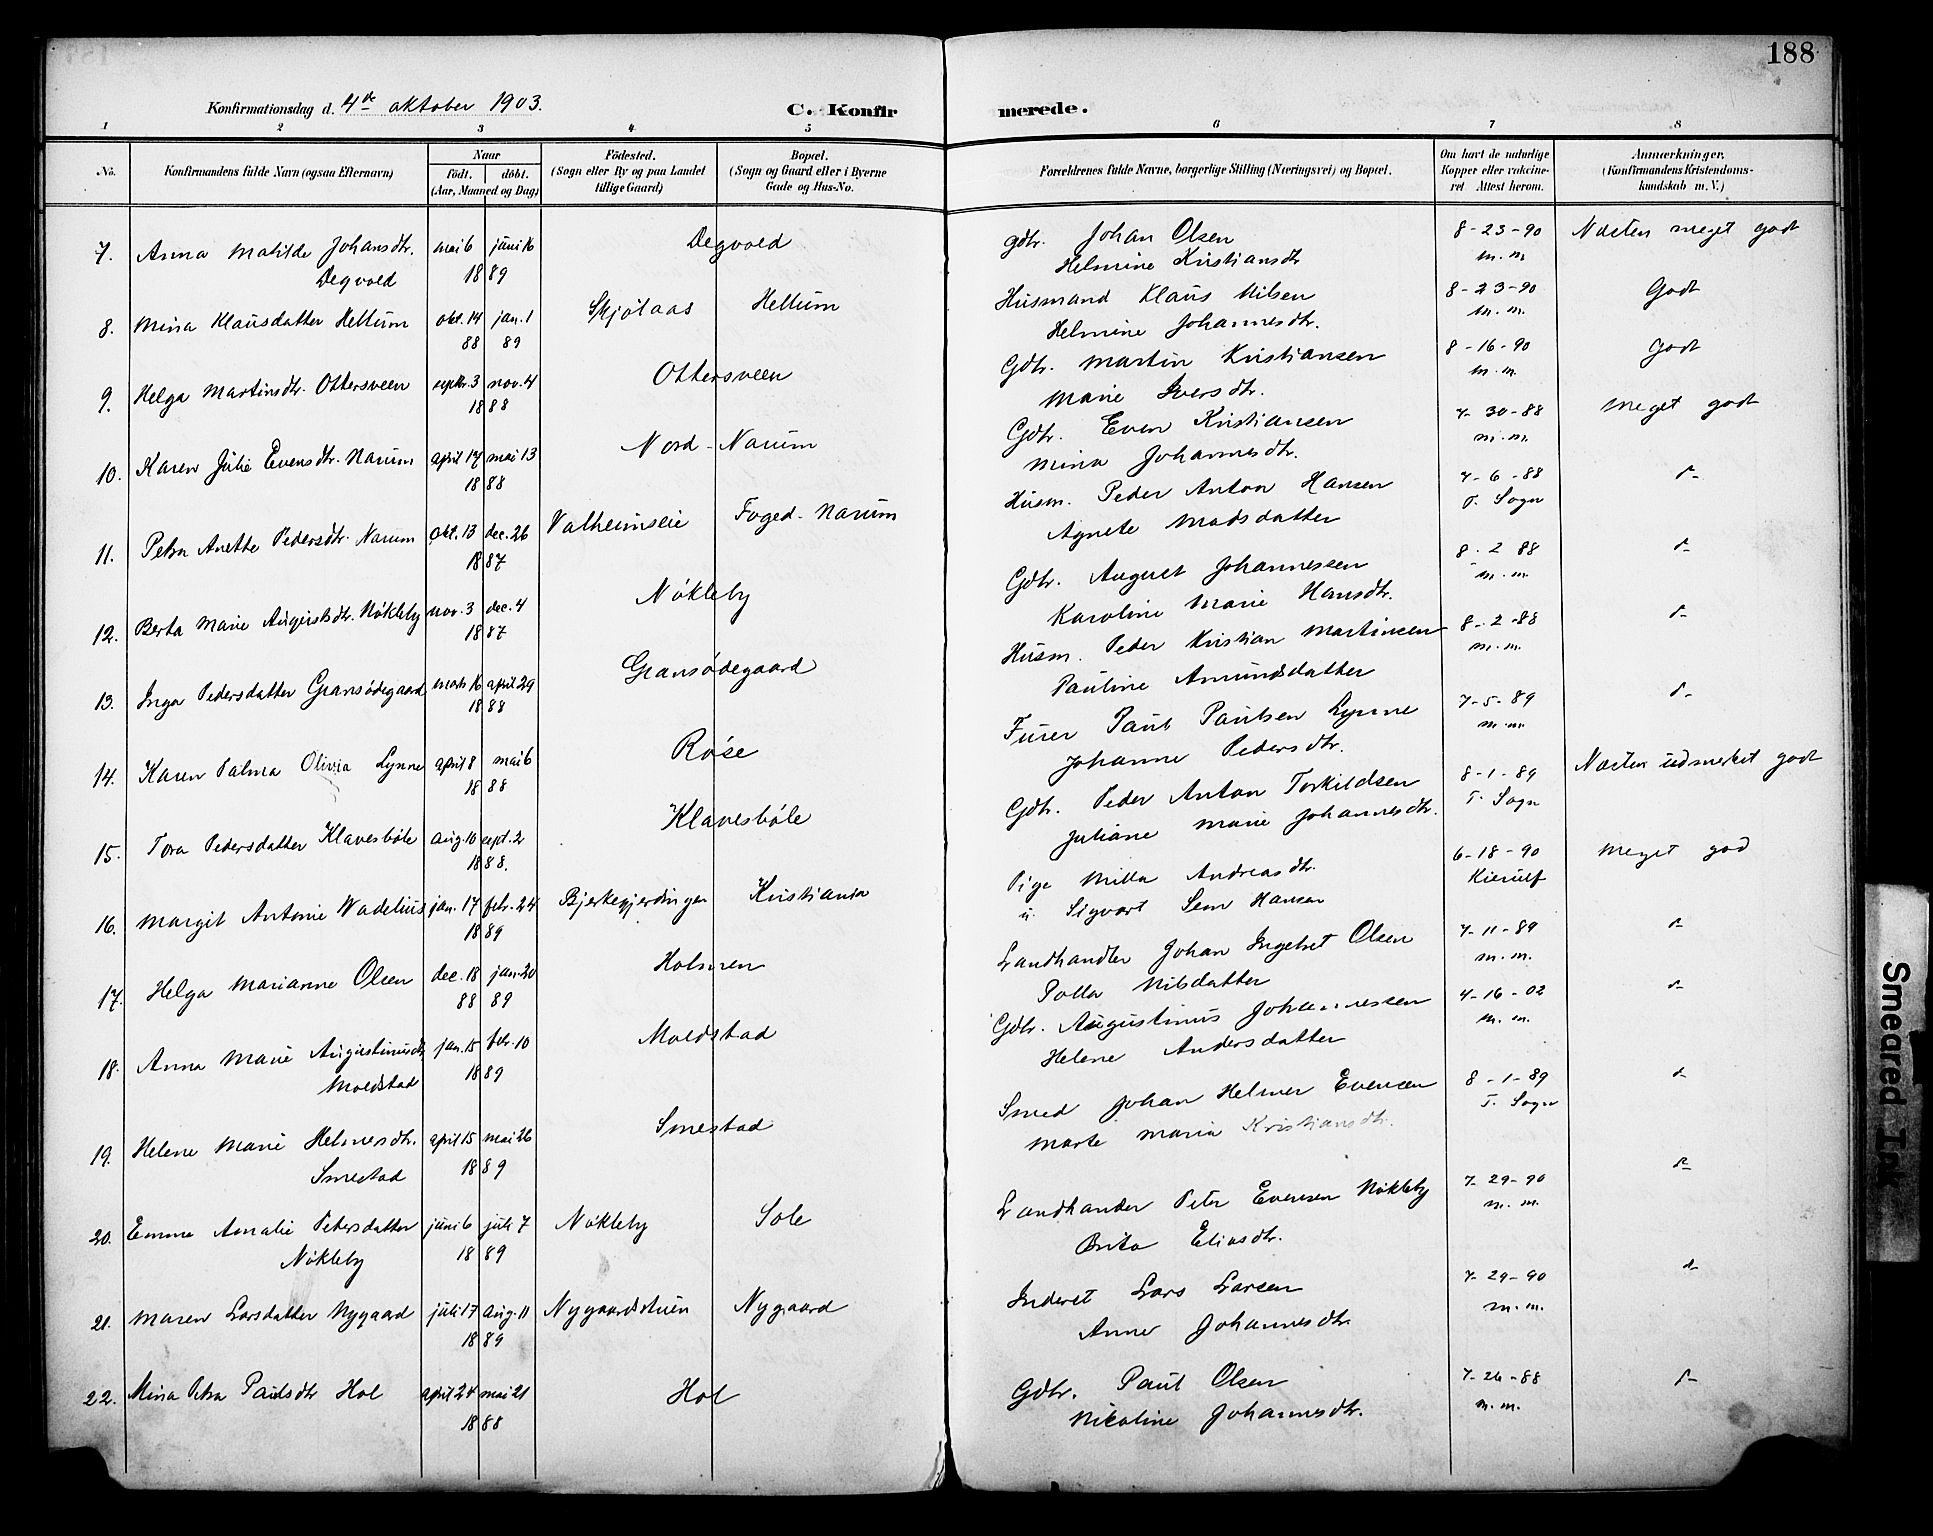 188
Konfirmationsdag d. 4de oktober 1903.
C. Konfirmerede.
1 2 3 4 5 6 7 8
No. Konfirmandens fulde Navn (ogsaa Efternavn) Naar födt. döbt. (Aar, Maaned og Dag) Födested. (Sogn eller By og paa Landet tillige Gaard) Bopæl. (Sogn og Gaard eller i Byerne Gade og Hus-No. Forældrenes fulde Navne, borgerlige Stilling (Næringsvei) og Bopæl. Om havt de naturlige Kopper eller vakcineret Attest herom. Anmærkninger. (Konfirmandens Kristendomskundskab m. V.)
7. Anna Matilde Johansdtr. mai 6 juni 16 Degvold gdbr. Johan Olsen 8-23-90 Næsten meget godt
Degvold 1889 Helmine Kristiansdtr m.m.
8. Mina Klausdatter Hellum okt. 14 jan. 1 Skjølaas Hellum Husmand Klaus Nilsen 8-23-90 Godt
88 89 Helmine Johannesdtr. m.m.
9. Helga Martinsdtr. Ottersveen septbr. 3 nov. 4 Ottersveen Gdbr. Martin Kristiansen 8-16-90 Godt
1888 Marie Iversdtr. m.m.
10. Karen Julie Evensdtr. Narum april 17 mai 13 Nord-Narum Gdbr. Even Kristiansen 7-30-88 Meget godt
1888 Mina Johannesdtr. m.m.
11. Petra Anette Pedersdtr. Narum okt. 13 dec. 26 Valheimseie Foged-Narum Husm. Peder Anton Hansen 7-6-88 d-
1887 Agnete Madsdatter T. Sogn
12. Berta Marie Augustsdtr. Nøkleby nov. 3 dec. 4 Nøkleby Gdbr. August Johannessen 8-2 88 d-
1887 Karoline Marie Hansdtr. m.m.
13. Inga Pedersdatter Gransødegaard marts 16 april 29 Gransødegaard Husm. Peder Kristian Martinsen 8-2-88 d-
1888 Pauline Amundsdatter m.m.
14. Karen Palma Olivia Lynne april 8 mai 6 Røse Furer Paul Paulsen Lynne 7-5-89 d-
1888 Johanne Pedersdtr. m.m.
15. Tora Pedersdatter Klavesbøle aug. 10 sept. 2 Klavesbøle Gdbr. Peder Anton Torkildsen 8-1-89 Næsten udmerket godt
1888. Juliane Marie Johannesdtr. T. Sogn
16. Margit Antonie Wadelius jan. 17 febr. 24 Bjerkegjerdingen Kristiania Pige Milla Andreasdtr. 6-18-90 Meget god
1889 u. Sigvart Sem Hansen Kierulf
17. Helga Marianne Olsen dec. 18 jan. 20 Holmen Landhandler Johan Ingebret Olsen 7-11-89 d-
88 89 Polla Nilsdatter m.m.
18. Anna Marie Augustinusdtr jan. 15 febr. 10 Moldstad Gdbr. Augustinus Johannessen 4-16-02 d-
Moldstad 1889 Helene Andersdatter m.m.
19. Helene Marie Helmersdtr. april 15 mai 26 Smestad Smed Johan Helmer Evensen 8-1-89 d-
Smestad 1889 Marte Maria Kristiansdtr. T. Sogn
20. Emma Amalie Petersdatter juni 6 juli 7 Nøkleby Sole Landhander Peter Evensen Nøkleby 7-29-90 d-
Nøkleby 1889 Brita Eliasdtr. m.m.
21. Maren Larsdatter Nygaard juli 17 aug. 11 Nygaardstuen Nygaard Inderst Lars Larsen 7-29-90 d-
1889 Anne Johannesdtr. m.m.
22. Mina Petra Paulsdtr Hol april 24 mai 21 Hol Gdbr. Paul Olsen 7-26-88 d-
1888 Nicoline Johannesdtr. m.m.
Smeared Ink